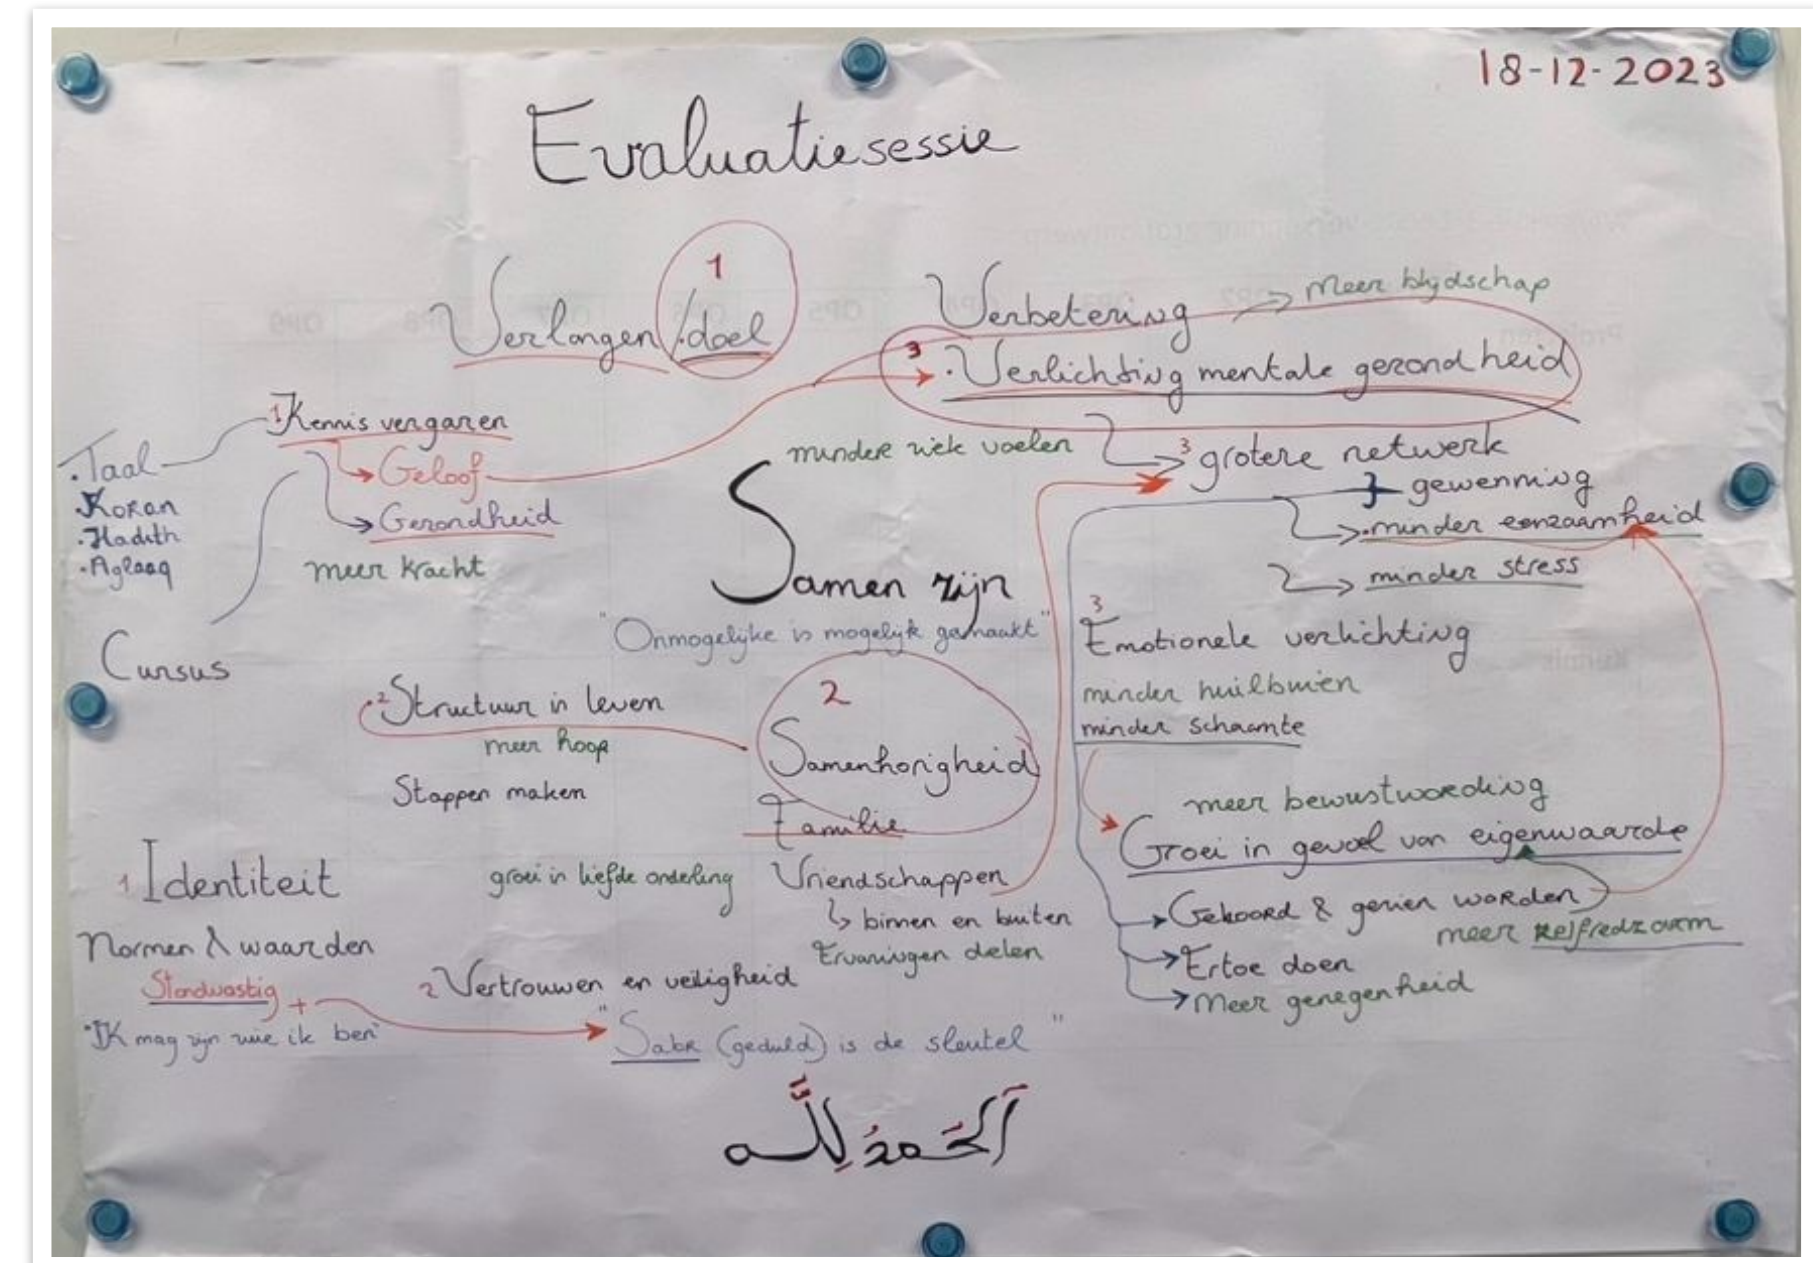 18-12-2023
Evaluatiesessie
1
Verlangen/doel
Verbetering
Meer blijdschap
3
·Verlichting mentale gezondheid
1 Kennis vergaren
·Taal
Geloof
Koran
Gezondheid
·Hadith
·Aglaaq
meer kracht
Cursus
mindere ziek voelen
3 grotere netwerk
gewenning
·minder eenzaamheid
minder stress
Samen zijn
"Onmogelijke is mogelijk gemaakt"
3
Emotionele verlichting
minder huilbuien
minder schaamte
2 Structuur in leven
meer hoop
Stappen maken
2
Samenhorigheid
Familie
Vriendschappen
↳ binnen en buiten
Ervaringen delen
groei in liefde onderling
meer bewustwording
Groei in gevoel van eigenwaarde
Gehoord & gezien worden
meer zelfredzaam
Ertoe doen
Meer genegenheid
1 Identiteit
Normen & waarden
Standvastig +
"Ik mag zijn wie ik ben"
2 Vertrouwen en veiligheid
"Sabr (geduld) is de sleutel"
اَلْحَمدُ لِلَّه